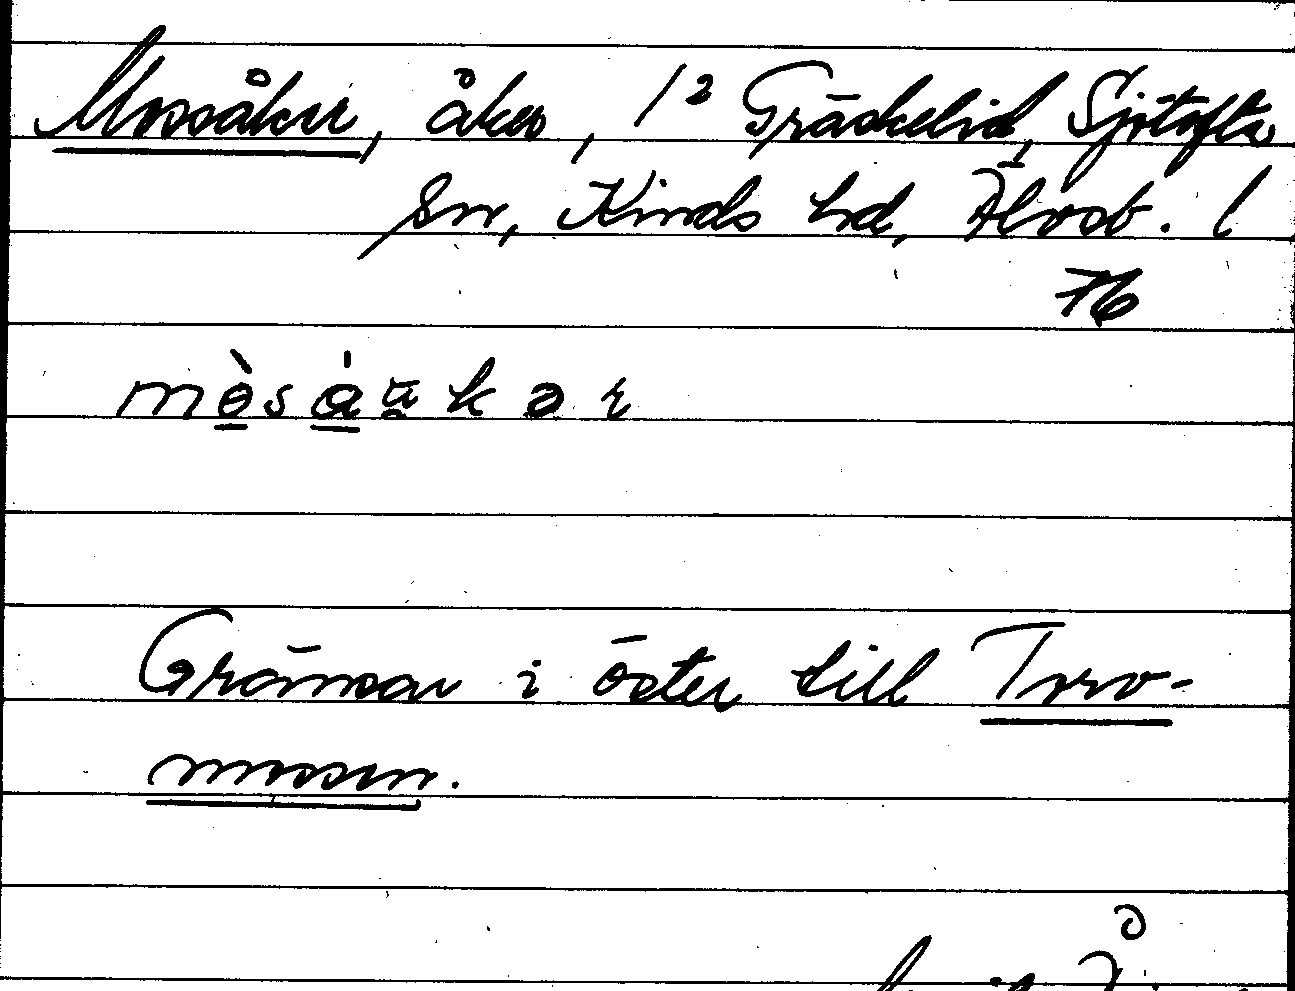 Mossåker, åker, 1² Gräskelid, Sjötofta
sn, Kinds hd, Älvsb. l
76
mòsåu̯kər
Gränsar i öster till Torv-
mossen.